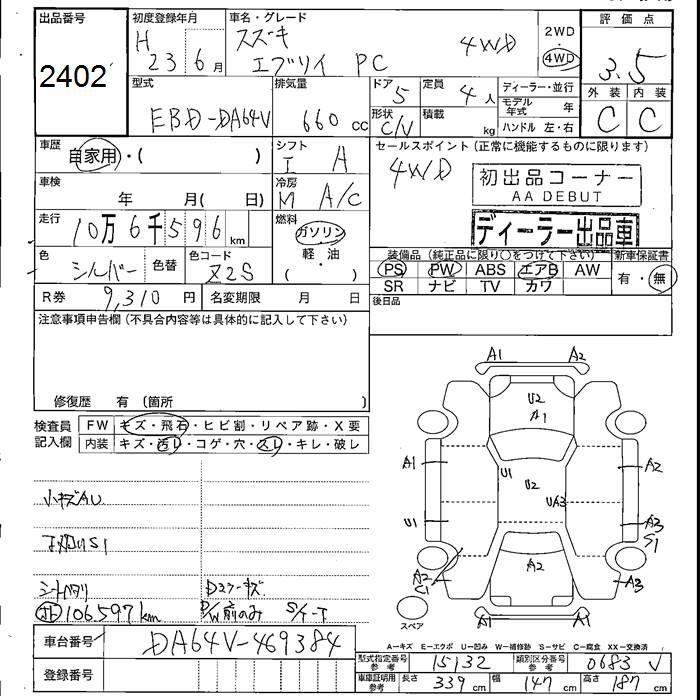 出品番号
2402
初度登録年月
H 23 6月
車名・グレード
スズキ
エブリイ PC 4WD
2WD
4WD
評価点
3.5
外装 内装
C C
型式
EBD-DA64V
排気量
660 cc
ドア 5
形状 C/V
定員 4人
積載 kg
ディーラー・並行
モデル年式 年
ハンドル 左・右
車歴
自家用・( )
シフト
I A
冷房
M A/C
セールスポイント(正常に機能するものに限ります)
4WD
初出品コーナー
AA DEBUT
ディーラー出品車
車検
年 月( 日)
走行
10万6千596km
燃料
ガソリン
・軽油
( )
色
シルバー
色替
色コード
Z2S
装備品(純正品に限り○をつけて下さい)
PS PW ABS エアB AW
SR ナビ TV カワ
新車保証書
有・無
R券 9,310円
名変期限 月 日
後日品
注意事項申告欄(不具合内容等は具体的に記入して下さい)
修復歴 有 (箇所 )
検査員
記入欄
FW キズ・飛石・ヒビ割・リペア跡・X要
内装 キズ・汚レ・コゲ・穴・スレ・キレ・破レ
小キズAU
S1
シートヘタリ
106.597km
前のみ
A1 A2
U2
A1
A1
U1
U2
UA3
A2
U1
A3
S1
A2
C1
A2
A3
A1 A1
スペア
A-キズ E-エクボ U-凹み W-補修跡 S-サビ C-腐食 XX-交換済
車台番号
DA64V-469384
登録番号
型式指定番号 参考 15132
類別区分番号 参考 0683
車庫証明用 参考 長さ 339 cm 幅 147 cm 高さ 187 cm